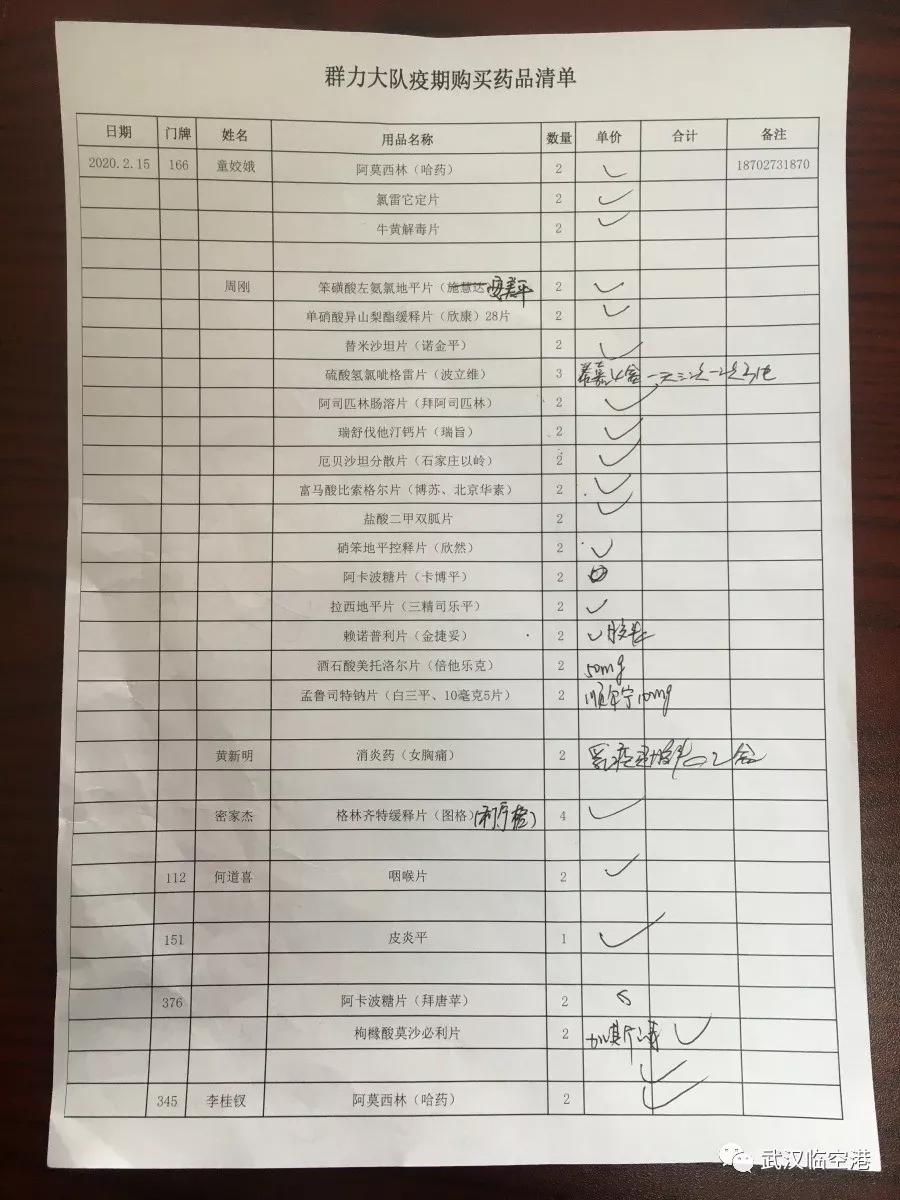 群力大队疫期购买药品清单
日期 门牌 姓名 用品名称 数量 单价 合计 备注
2020.2.15 166 童姣娥 阿莫西林（哈药） 2 ✓ 18702731870
氯雷它定片 2 ✓
牛黄解毒片 2 ✓
周刚 笨磺酸左氨氯地平片（施慧达 2 ✓
单硝酸异山梨酯缓释片（欣康）28片 2 ✓
替米沙坦片（诺金平） 2 ✓
硫酸氢氯吡格雷片（波立维） 3
阿司匹林肠溶片（拜阿司匹林） 2 ✓
瑞舒伐他汀钙片（瑞旨） 2 ✓
厄贝沙坦分散片（石家庄以岭） 2 ✓
富马酸比索格尔片（博苏、北京华素） 2 ✓
盐酸二甲双胍片 2 ✓
硝笨地平控释片（欣然） 2 ✓
阿卡波糖片（卡博平） 2
拉西地平片（三精司乐平） 2 ✓
赖诺普利片（金捷妥） 2 ✓ 胶囊
酒石酸美托洛尔片（倍他乐克） 2 50mg
孟鲁司特钠片（白三平、10毫克5片） 2 顺尔宁10mg
黄新明 消炎药（女胸痛） 2
密家杰 格林齐特缓释片（图格） 4 ✓
112 何道喜 咽喉片 2 ✓
151 皮炎平 1 ✓
376 阿卡波糖片（拜唐苹） 2
枸橼酸莫沙必利片 2 加斯清 ✓
✓
345 李桂钗 阿莫西林（哈药） 2 ✓
武汉临空港